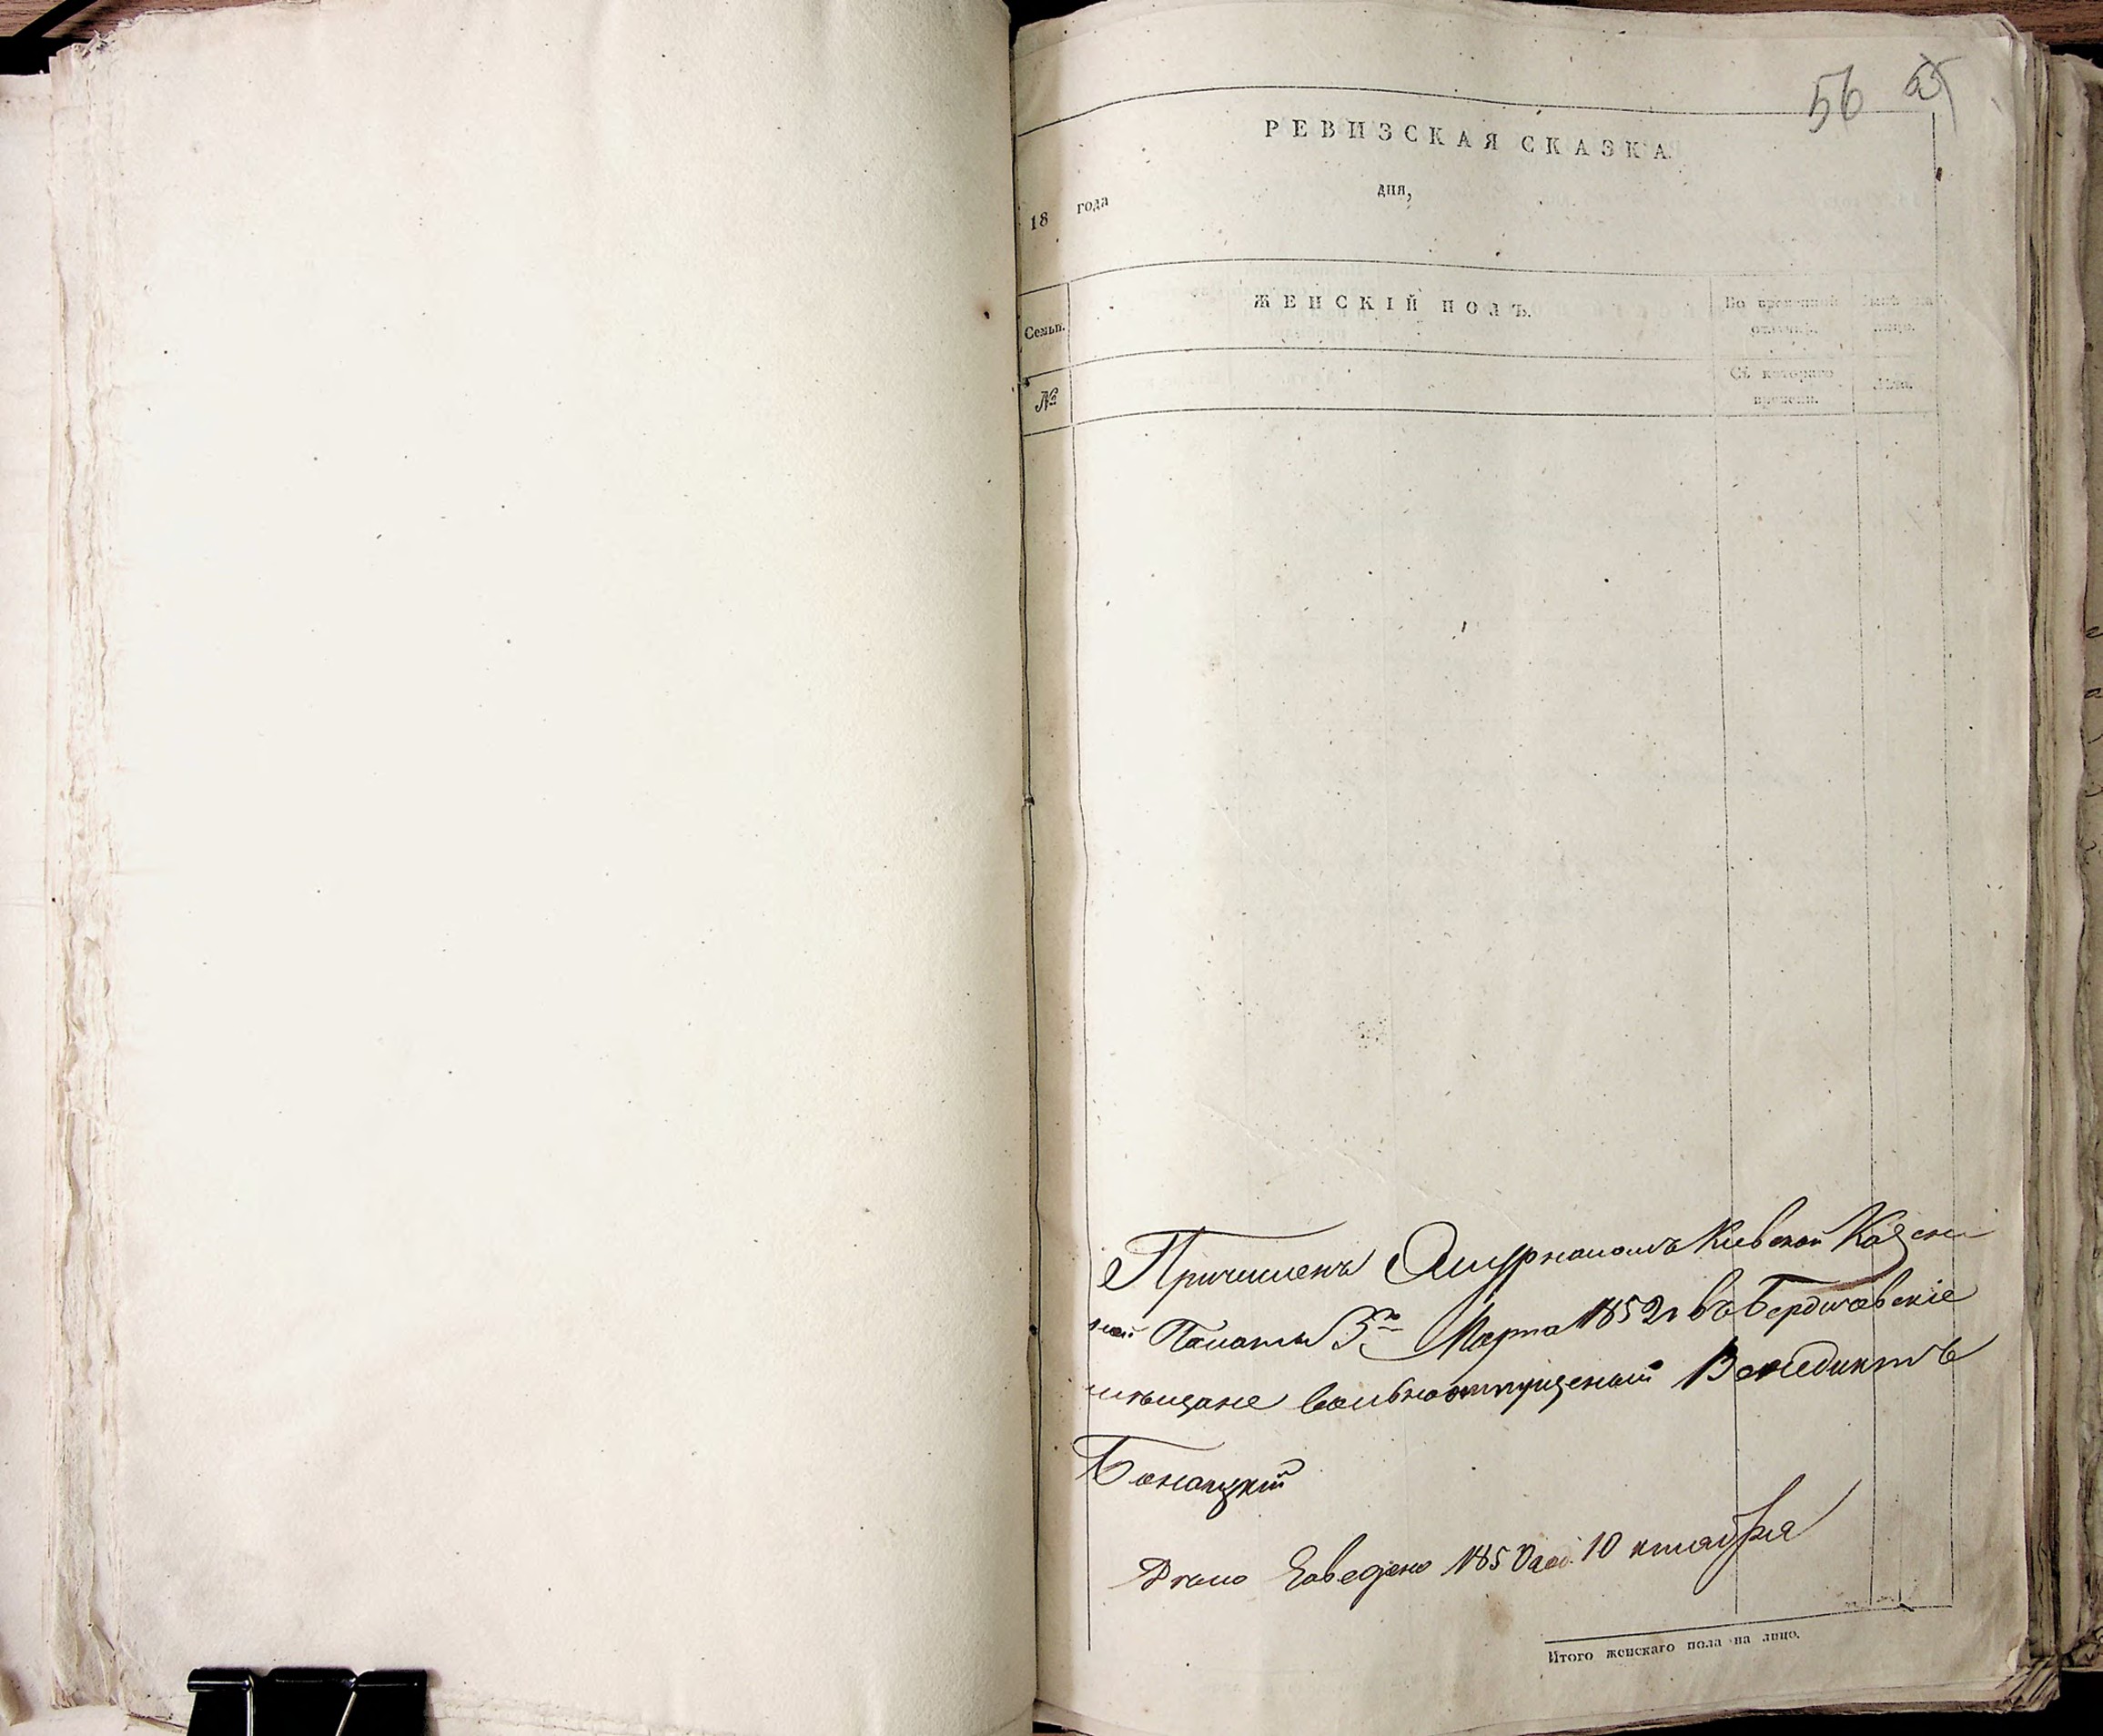 56 55
РЕВИЗСКАЯ СКАЗКА
18 года дня,
Семьи. ЖЕНСКІЙ ПОЛЪ. Во временной отлучкѣ. Нынѣ на лицо.
№ Съ котораго времени. Лѣта.
Причисленъ Журналомъ Киевской Казен
ной Палаты 3го Марта 1852 г въ Бердичевскіе
мѣщане вольноотпущеный Венедиктъ
Дѣло Заведено 1850 года 10 ктября
Итого женскаго пола на лицо.